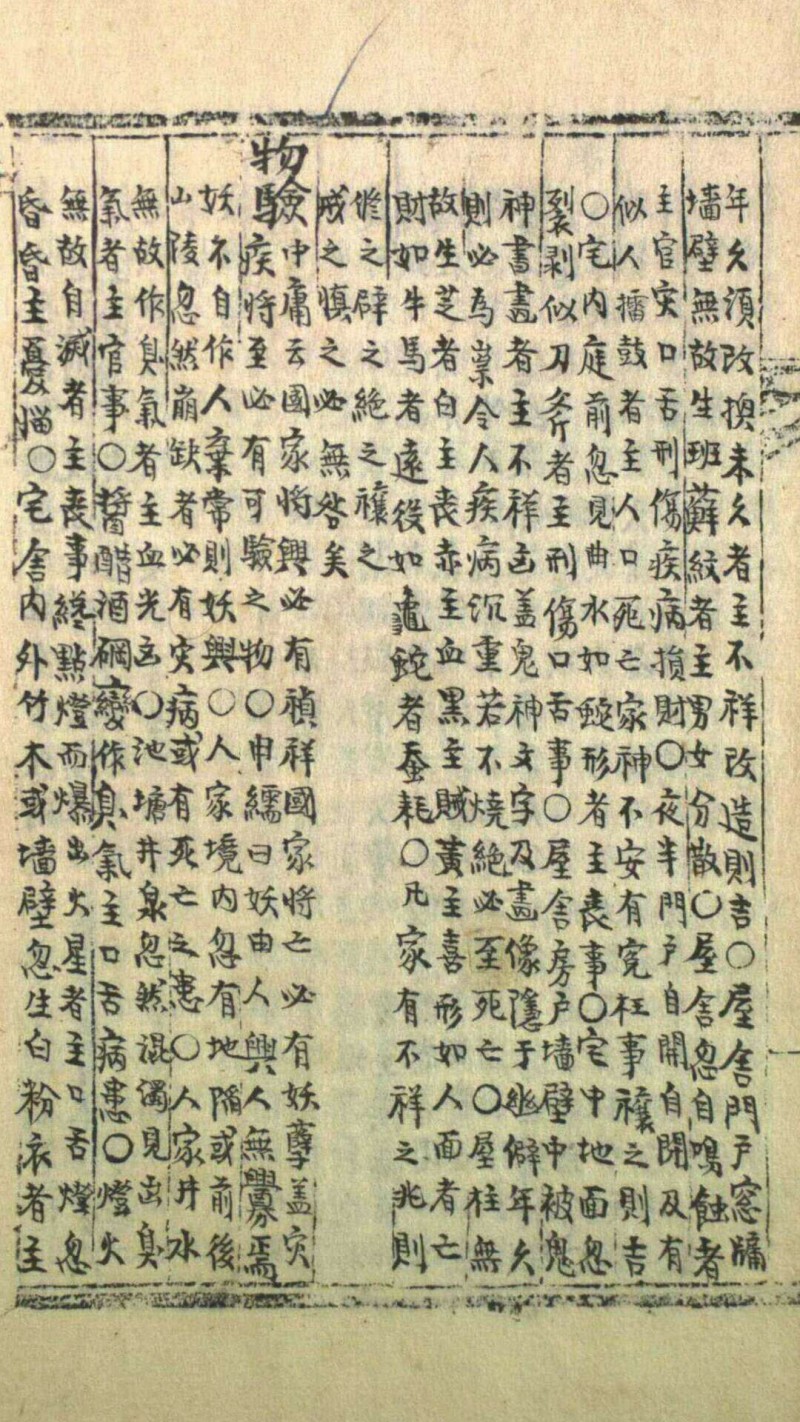 年久須改換未久者主不祥改造則吉○屋舍門戶窓牖
墻壁無故生班蘚紋者主男女分散○屋舍忽自鳴蝕者
主官灾口舌刑傷疾病損財○夜半門戶自開自閉及有
似人擂鼓者主人口死亡家神不安有寃枉事禳之則吉
○宅內庭前忽見曲水如蛇形者主丧事○宅中地面忽
裂剥似刀斧者主刑傷口舌事○屋舍房戶墻壁中被鬼
神書畵者主不祥凶盖鬼神文字及畵像隱于幽僻年久
則必為祟令人疾病沉重若不燒絶必至死亡○屋柱無
故生芝者白主丧赤主血黑主賊黃主喜形如人面者亡
財如牛馬者遠役如龜蛇者蚕耗○凡家有不祥之兆則
之辟之絶之禳之
戒之慎之必無咎矣
物驗中庸云國家將興必有禎祥國家將亡必有妖孽盖灾
疾將至必有可驗之物○申繻曰妖由人興人無釁焉
妖不自作人棄常則妖興○人家境內忽有地陷或前後
山陵忽然崩缺者必有灾病或有死亡之患○人家井水
無故作臭氣者主血光凶○池塘井泉忽然混濁見出臭
氣者主官事○醬醋酒變作臭氣主口舌病患○燈火
無故自滅者主丧事點燈而爆出火星者主口舌燈忽
昏昏主憂惱○宅舍內外竹木或墻壁忽生白粉衣者主